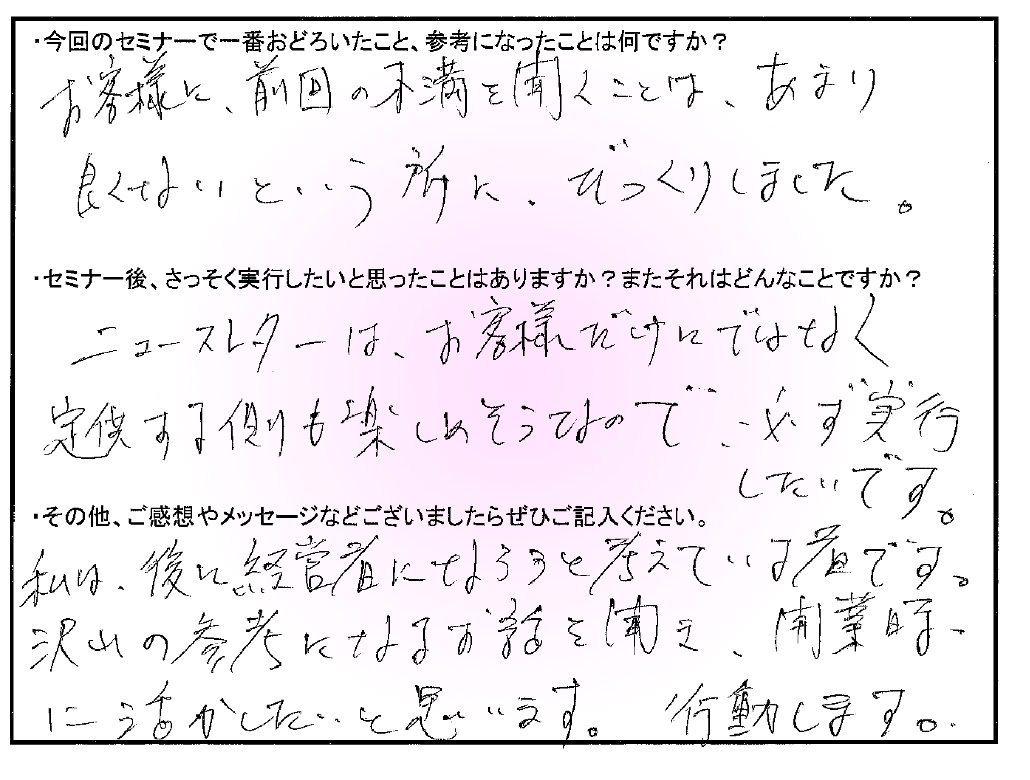 ・今回のセミナーで一番おどろいたこと、参考になったことは何ですか？
お客様に、前回の不満を聞くことは、あまり
良くないという所に、びっくりしました。
・セミナー後、さっそく実行したいと思ったことはありますか？またそれはどんなことですか？
ニュースレターは、お客様だけにではなく
定供する側も楽しめそうなので、必ず実行
したいです。
・その他、ご感想やメッセージなどございましたらぜひご記入ください。
私は、後に経営者になろうと考えている者です。
沢山の参考になるお話を聞き、開業時
に活かしたいと思います。 行動します。